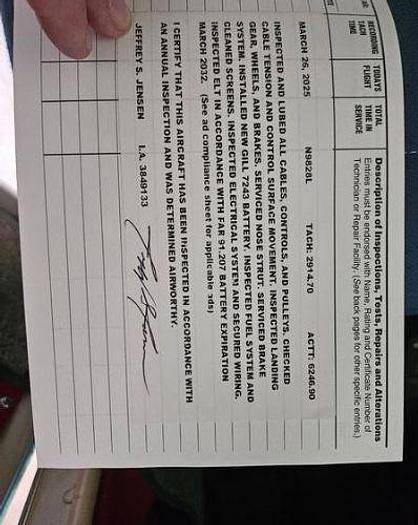 RECORDING TACH TIME
TODAYS FLIGHT
TOTAL TIME IN SERVICE
Description of Inspections, Tests, Repairs and Alterations
Entries must be endorsed with Name, Rating and Certificate Number of
Technician or Repair Facility. (See back pages for other specific entries.)
MARCH 26, 2025 N9828L TACH: 2914.70 ACTT: 6246.90
INSPECTED AND LUBED ALL CABLES, CONTROLS, AND PULLEYS. CHECKED
CABLE TENSION AND CONTROL SURFACE MOVEMENT. INSPECTED LANDING
GEAR, WHEELS, AND BRAKES. SERVICED NOSE STRUT. SERVICED BRAKE
SYSTEM. INSTALLED NEW GILL 7243 BATTERY. INSPECTED FUEL SYSTEM AND
CLEANED SCREENS. INSPECTED ELECTRICAL SYSTEM AND SECURED WIRING.
INSPECTED ELT IN ACCORDANCE WITH FAR 91.207 BATTERY EXPIRATION
MARCH 2032. (See ad compliance sheet for applicable ads)
I CERTIFY THAT THIS AIRCRAFT HAS BEEN INSPECTED IN ACCORDANCE WITH
AN ANNUAL INSPECTION AND WAS DETERMINED AIRWORTHY.
JEFFREY S. JENSEN I.A. 3849133